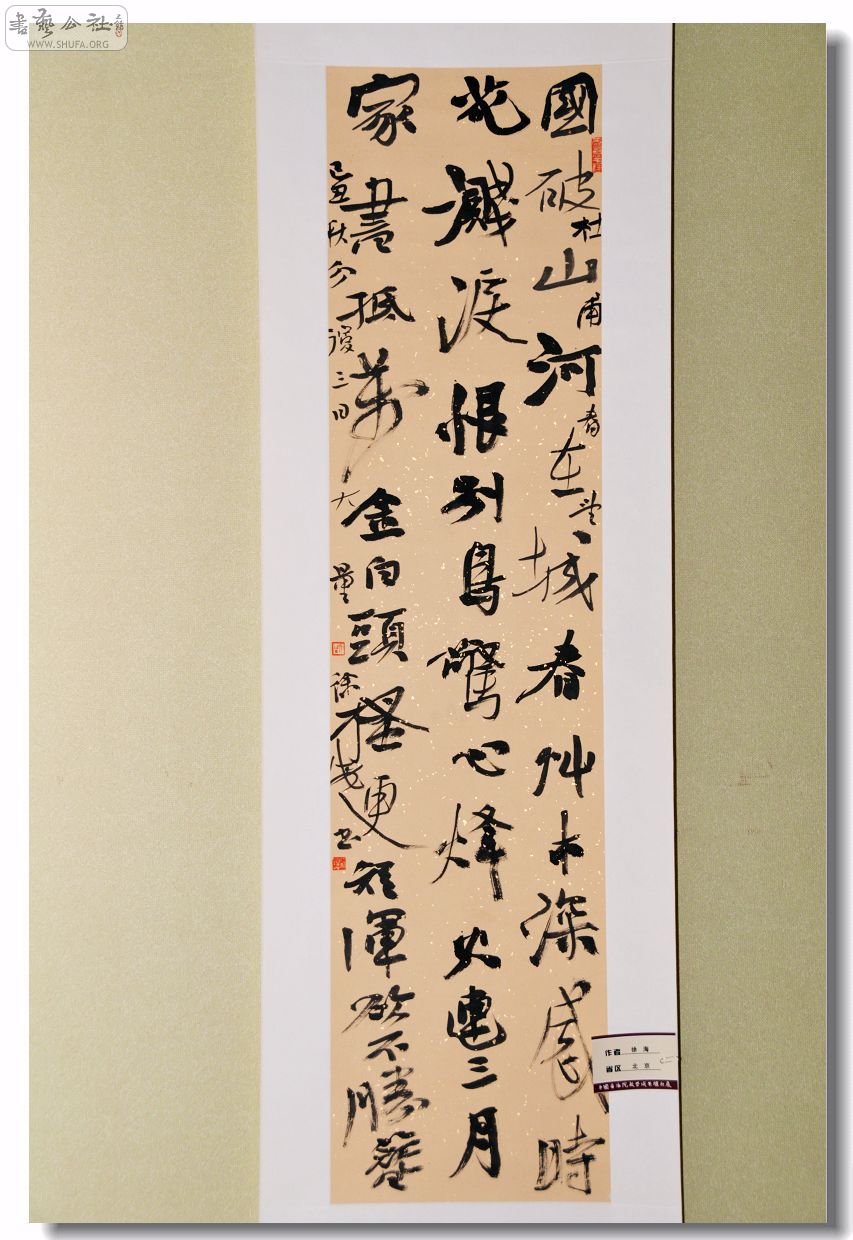 書藝公社
WWW.SHUFA.ORG
國破山河在城春艸木深感時
花濺淚恨別鳥驚心烽火連三月
家書抵萬金白頭搔更短渾欲不勝簪
杜甫春望
己丑秋分後三日大量徐海书
作者 徐海
省区 北京 (二)
中國書法院教學成果